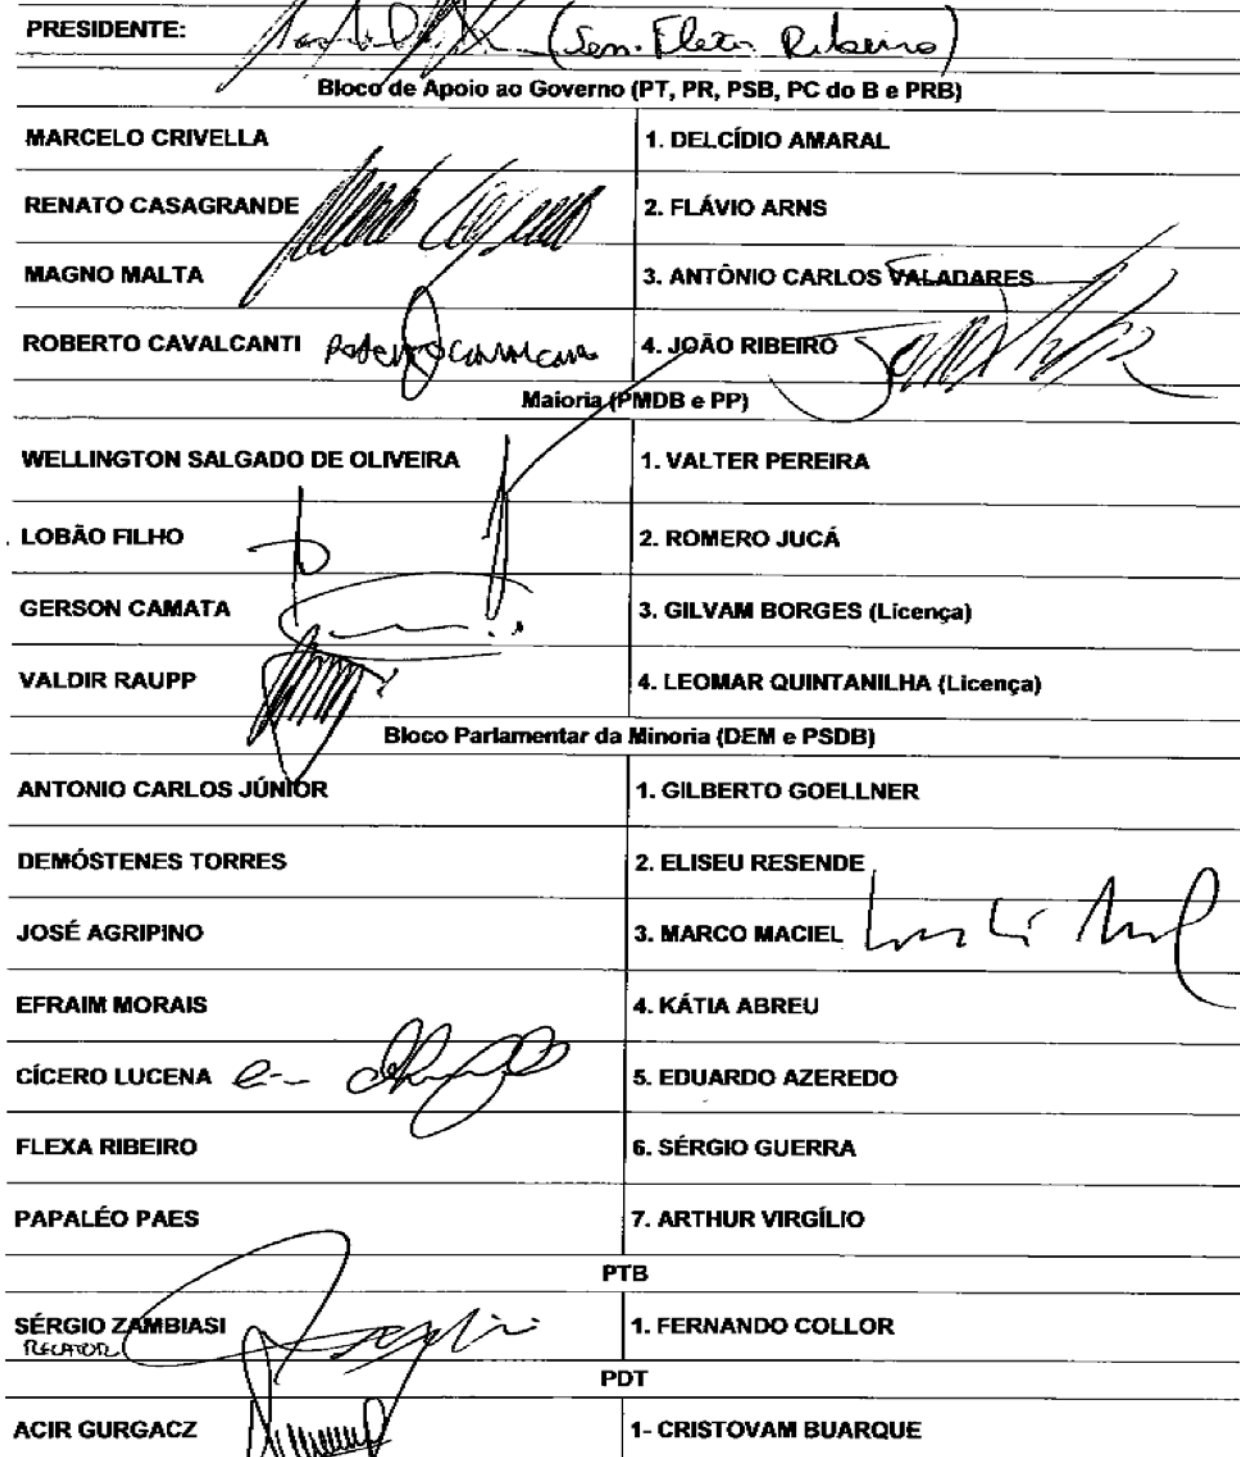 PRESIDENTE: (Sen. Flexa Ribeiro)
Bloco de Apoio ao Governo (PT, PR, PSB, PC do B e PRB)
MARCELO CRIVELLA 1. DELCÍDIO AMARAL
RENATO CASAGRANDE 2. FLÁVIO ARNS
MAGNO MALTA 3. ANTÔNIO CARLOS VALADARES
ROBERTO CAVALCANTI 4. JOÃO RIBEIRO
Maioria (PMDB e PP)
WELLINGTON SALGADO DE OLIVEIRA 1. VALTER PEREIRA
LOBÃO FILHO 2. ROMERO JUCÁ
GERSON CAMATA 3. GILVAM BORGES (Licença)
VALDIR RAUPP 4. LEOMAR QUINTANILHA (Licença)
Bloco Parlamentar da Minoria (DEM e PSDB)
ANTONIO CARLOS JÚNIOR 1. GILBERTO GOELLNER
DEMÓSTENES TORRES 2. ELISEU RESENDE
JOSÉ AGRIPINO 3. MARCO MACIEL
EFRAIM MORAIS 4. KÁTIA ABREU
CÍCERO LUCENA 5. EDUARDO AZEREDO
FLEXA RIBEIRO 6. SÉRGIO GUERRA
PAPALÉO PAES 7. ARTHUR VIRGÍLIO
PTB
SÉRGIO ZAMBIASI 1. FERNANDO COLLOR
RELATOR
PDT
ACIR GURGACZ 1- CRISTOVAM BUARQUE